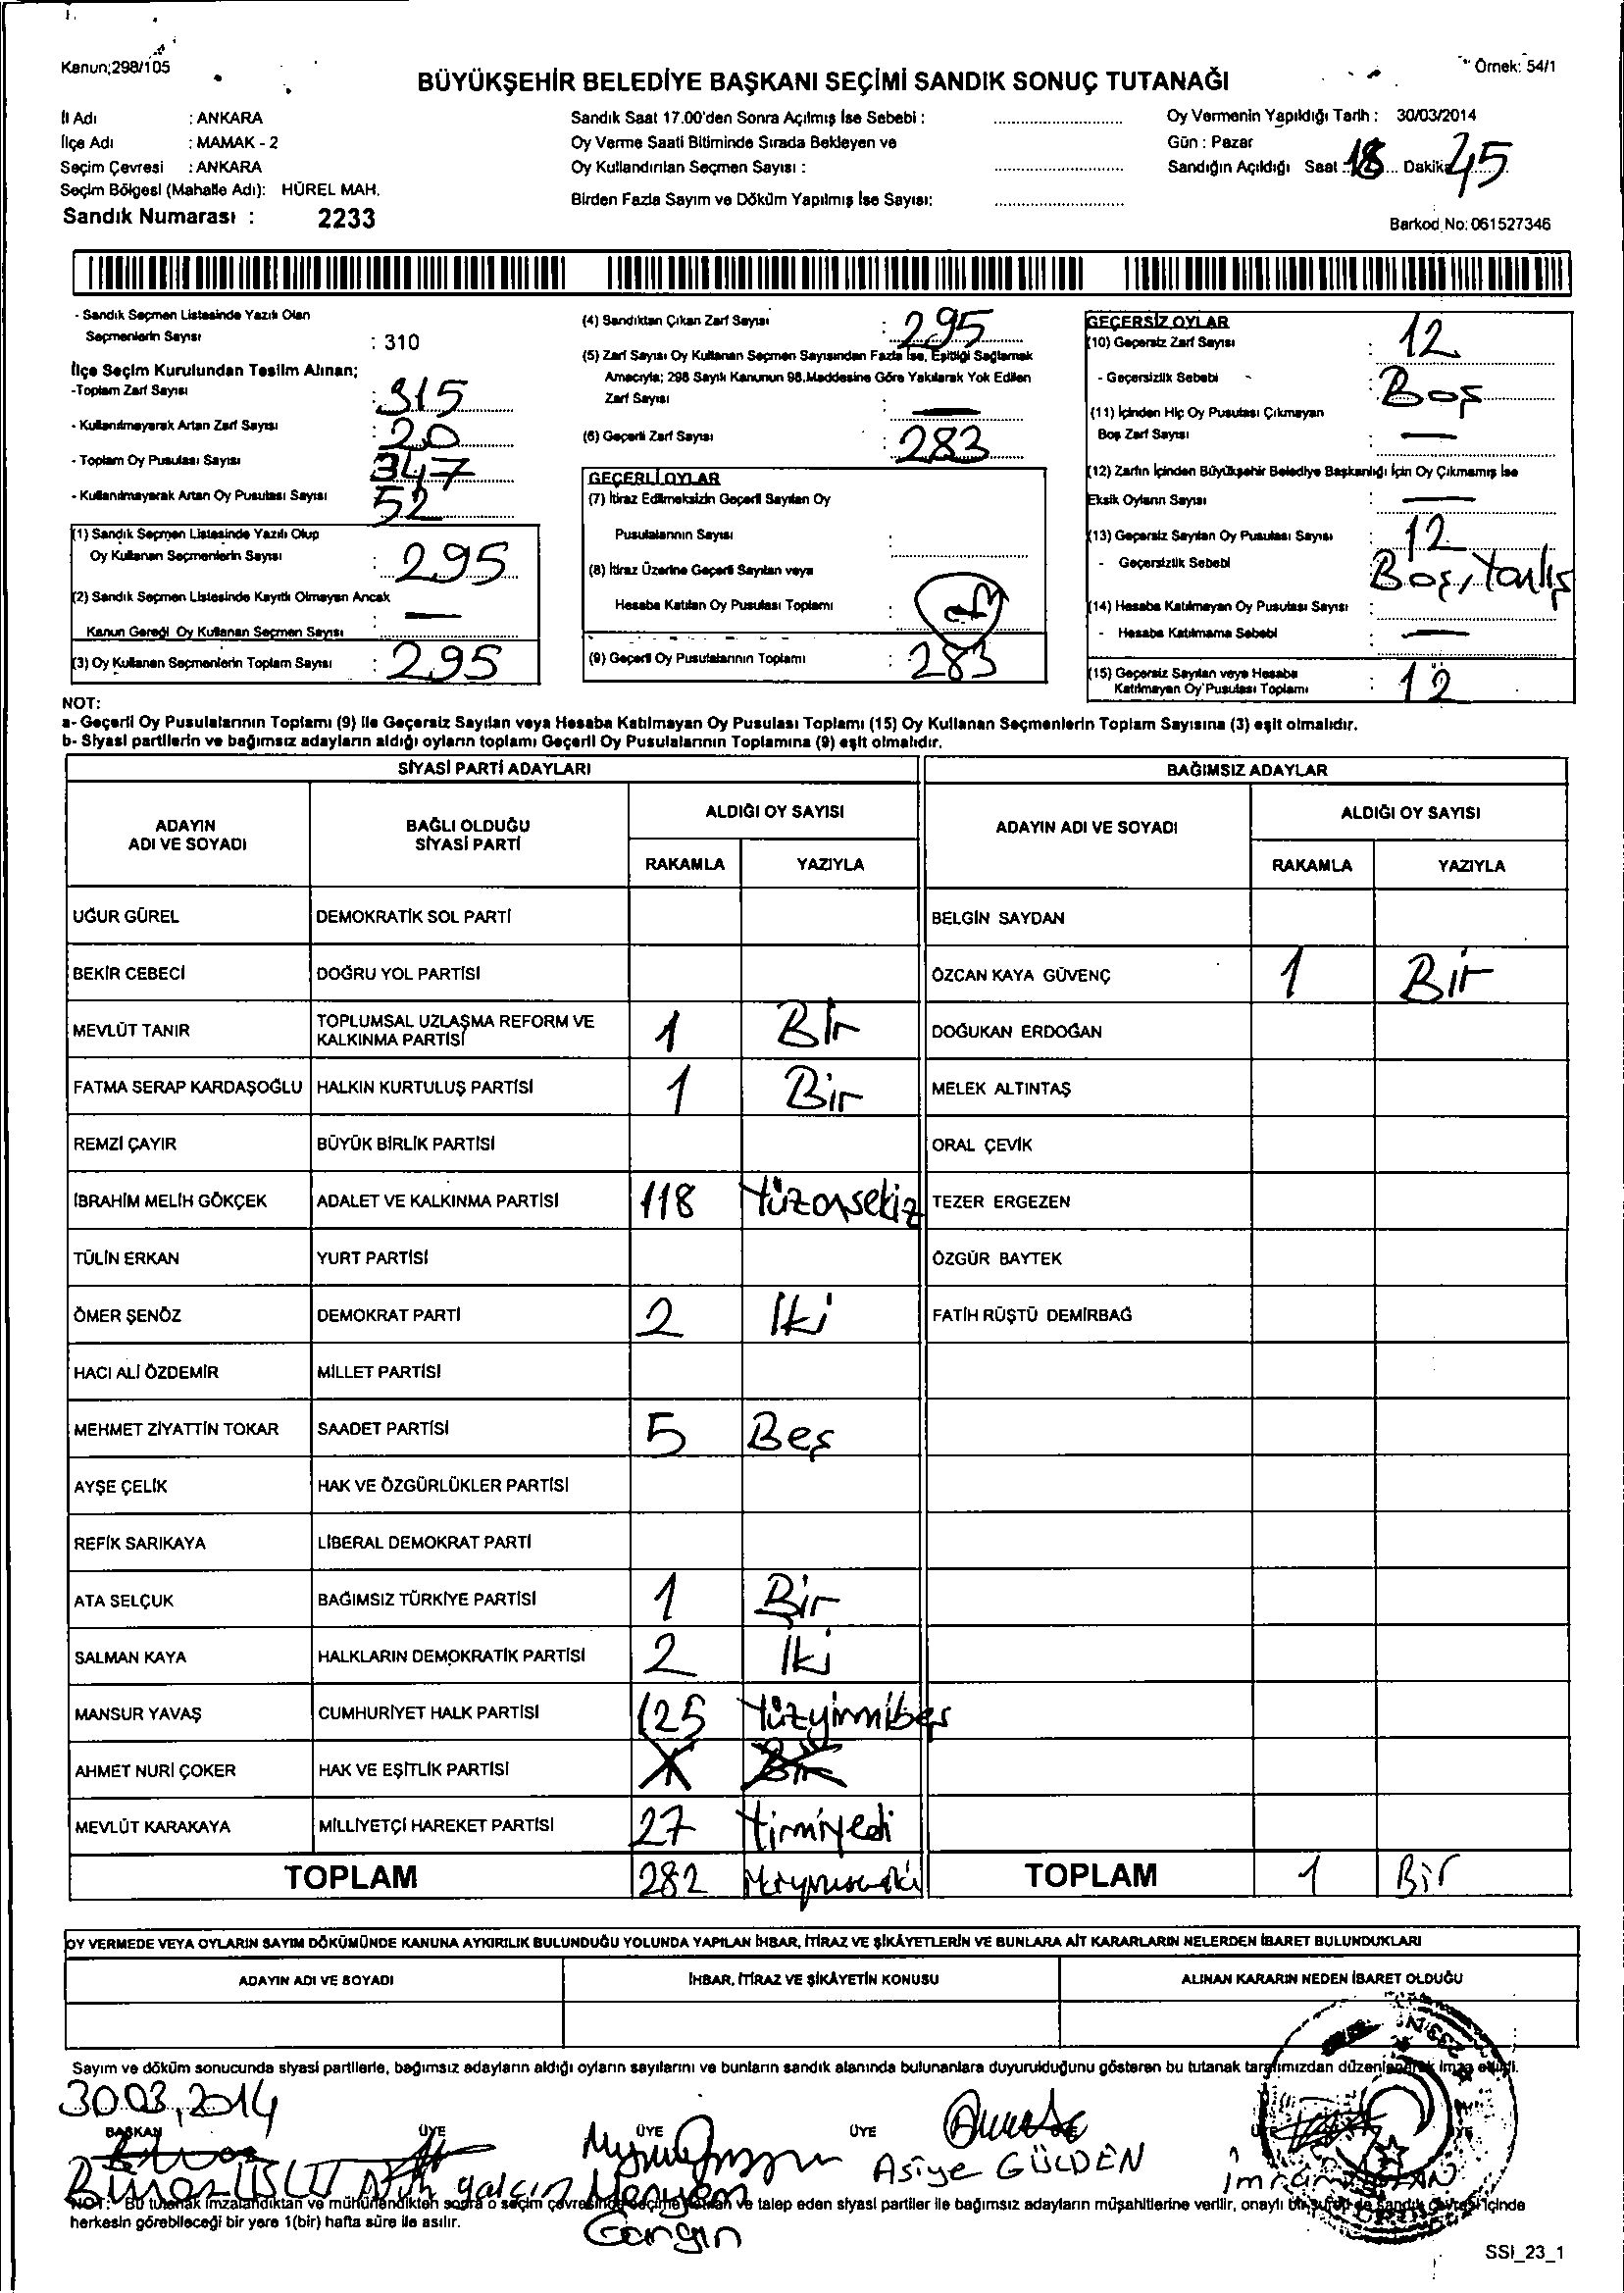 Kanun;298/105
Örnek: 54/1
BÜYÜKŞEHİR BELEDİYE BAŞKANI SEÇİMİ SANDIK SONUÇ TUTANAĞI
İl Adı : ANKARA
İlçe Adı : MAMAK - 2
Seçim Çevresi : ANKARA
Seçim Bölgesi (Mahalle Adı): HÜREL MAH.
Sandık Numarası : 2233
Sandık Saat 17.00'den Sonra Açılmış İse Sebebi :
Oy Verme Saati Bitiminde Sırada Bekleyen ve
Oy Kullandırılan Seçmen Sayısı :
Birden Fazla Sayım ve Döküm Yapılmış İse Sayısı:
Oy Vermenin Yapıldığı Tarih : 30/03/2014
Gün : Pazar
Sandığın Açıldığı Saat : 18 Dakika 45
Barkod No: 061527346
- Sandık Seçmen Listesinde Yazılı Olan
Seçmenlerin Sayısı : 310
İlçe Seçim Kurulundan Teslim Alınan;
-Toplam Zarf Sayısı : 315
- Kullanılmayarak Artan Zarf Sayısı : 20
- Toplam Oy Pusulası Sayısı 347
- Kullanılmayarak Artan Oy Pusulası Sayısı 52
(1) Sandık Seçmen Listesinde Yazılı Olup
Oy Kullanan Seçmenlerin Sayısı : 295
(2) Sandık Seçmen Listesinde Kayıtlı Olmayan Ancak
Kanun Gereği Oy Kullanan Seçmen Sayısı : —
(3) Oy Kullanan Seçmenlerin Toplam Sayısı : 295
(4) Sandıktan Çıkan Zarf Sayısı : 295
(5) Zarf Sayısı Oy Kullanan Seçmen Sayısından Fazla İse, Eşitliği Sağlamak
Amacıyla; 298 Sayılı Kanunun 98.Maddesine Göre Yakılarak Yok Edilen
Zarf Sayısı : —
(6) Geçerli Zarf Sayısı : 283
GEÇERLİ OYLAR
(7) İtiraz Edilmeksizin Geçerli Sayılan Oy
Pusulalarının Sayısı :
(8) İtiraz Üzerine Geçerli Sayılan veya
Hesaba Katılan Oy Pusulası Toplamı :
(9) Geçerli Oy Pusulalarının Toplamı : 283
GEÇERSİZ OYLAR
(10) Geçersiz Zarf Sayısı : 12
- Geçersizlik Sebebi - : Boş
(11) İçinden Hiç Oy Pusulası Çıkmayan
Boş Zarf Sayısı : —
(12) Zarfın İçinden Büyükşehir Belediye Başkanlığı İçin Oy Çıkmamış İse
Eksik Oyların Sayısı : —
(13) Geçersiz Sayılan Oy Pusulası Sayısı : 12
- Geçersizlik Sebebi Boş, Yanlış
(14) Hesaba Katılmayan Oy Pusulası Sayısı :
- Hesaba Katılmama Sebebi : —
(15) Geçersiz Sayılan veya Hesaba
Katılmayan Oy Pusulası Toplamı : 12
NOT:
a- Geçerli Oy Pusulalarının Toplamı (9) ile Geçersiz Sayılan veya Hesaba Katılmayan Oy Pusulası Toplamı (15) Oy Kullanan Seçmenlerin Toplam Sayısına (3) eşit olmalıdır.
b- Siyasi partilerin ve bağımsız adayların aldığı oyların toplamı Geçerli Oy Pusulalarının Toplamına (9) eşit olmalıdır.
SİYASİ PARTİ ADAYLARI BAĞIMSIZ ADAYLAR
ADAYIN ADI VE SOYADI BAĞLI OLDUĞU SİYASİ PARTİ ALDIĞI OY SAYISI ADAYIN ADI VE SOYADI ALDIĞI OY SAYISI
RAKAMLA YAZIYLA RAKAMLA YAZIYLA
UĞUR GÜREL DEMOKRATİK SOL PARTİ BELGİN SAYDAN
BEKİR CEBECİ DOĞRU YOL PARTİSİ ÖZCAN KAYA GÜVENÇ 1 Bir
MEVLÜT TANIR TOPLUMSAL UZLAŞMA REFORM VE KALKINMA PARTİSİ 1 Bir DOĞUKAN ERDOĞAN
FATMA SERAP KARDAŞOĞLU HALKIN KURTULUŞ PARTİSİ 1 Bir MELEK ALTINTAŞ
REMZİ ÇAYIR BÜYÜK BİRLİK PARTİSİ ORAL ÇEVİK
İBRAHİM MELİH GÖKÇEK ADALET VE KALKINMA PARTİSİ 118 Yüzonsekiz TEZER ERGEZEN
TÜLİN ERKAN YURT PARTİSİ ÖZGÜR BAYTEK
ÖMER ŞENÖZ DEMOKRAT PARTİ 2 İki FATİH RÜŞTÜ DEMİRBAĞ
HACI ALİ ÖZDEMİR MİLLET PARTİSİ
MEHMET ZİYATTİN TOKAR SAADET PARTİSİ 5 Beş
AYŞE ÇELİK HAK VE ÖZGÜRLÜKLER PARTİSİ
REFİK SARIKAYA LİBERAL DEMOKRAT PARTİ
ATA SELÇUK BAĞIMSIZ TÜRKİYE PARTİSİ 1 Bir
SALMAN KAYA HALKLARIN DEMOKRATİK PARTİSİ 2 İki
MANSUR YAVAŞ CUMHURİYET HALK PARTİSİ 125 Yüzyirmibeş
AHMET NURİ ÇOKER HAK VE EŞİTLİK PARTİSİ
MEVLÜT KARAKAYA MİLLİYETÇİ HAREKET PARTİSİ 27 Yirmiyedi
TOPLAM 282 TOPLAM 1 Bir
OY VERMEDE VEYA OYLARIN SAYIM DÖKÜMÜNDE KANUNA AYKIRILIK BULUNDUĞU YOLUNDA YAPILAN İHBAR, İTİRAZ VE ŞİKÂYETLERİN VE BUNLARA AİT KARARLARIN NELERDEN İBARET BULUNDUKLARI
ADAYIN ADI VE SOYADI İHBAR, İTİRAZ VE ŞİKÂYETİN KONUSU ALINAN KARARIN NEDEN İBARET OLDUĞU
Sayım ve döküm sonucunda siyasi partilerle, bağımsız adayların aldığı oyların sayılarını ve bunların sandık alanında bulunanlara duyurulduğunu gösteren bu tutanak tarafımızdan düzenlenerek imza edildi.
30.03.2014
BAŞKAN ÜYE ÜYE ÜYE
Fatih Yalçın Meryem Gangın Asiye GÜLDEN
NOT: Bu tutanak imzalandıktan ve mühürlendikten sonra o seçim çevresinde seçime katılan ve talep eden siyasi partiler ile bağımsız adayların müşahitlerine verilir, onaylı bir sureti de sandık çevresi içinde
herkesin görebileceği bir yere 1(bir) hafta süre ile asılır.
SSI_23_1